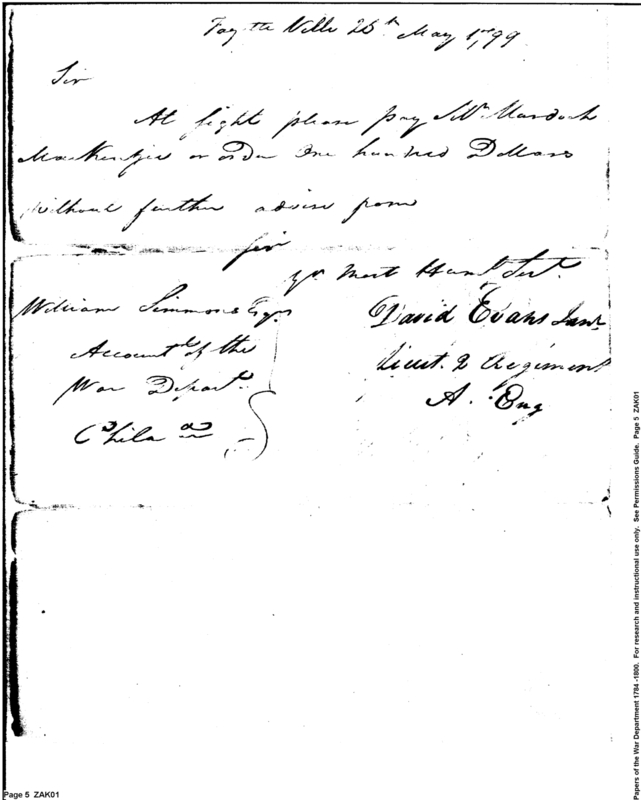 Fayette Ville 26th May 1799
Sir
At sight please pay Mr. Murdoch
MacKenzie or order One hundred Dollars
without further advise from
Sir
yr. Most Humbl. Servt.
David Evans Junr.
Lieut. 2 Regiment
A. Eng
William Simmons Esqr.
Accountt. of the
War Departt.
Philada.
Page 5 ZAK01
Papers of the War Department 1784 -1800. For research and instructional use only. See Permissions Guide. Page 5 ZAK01